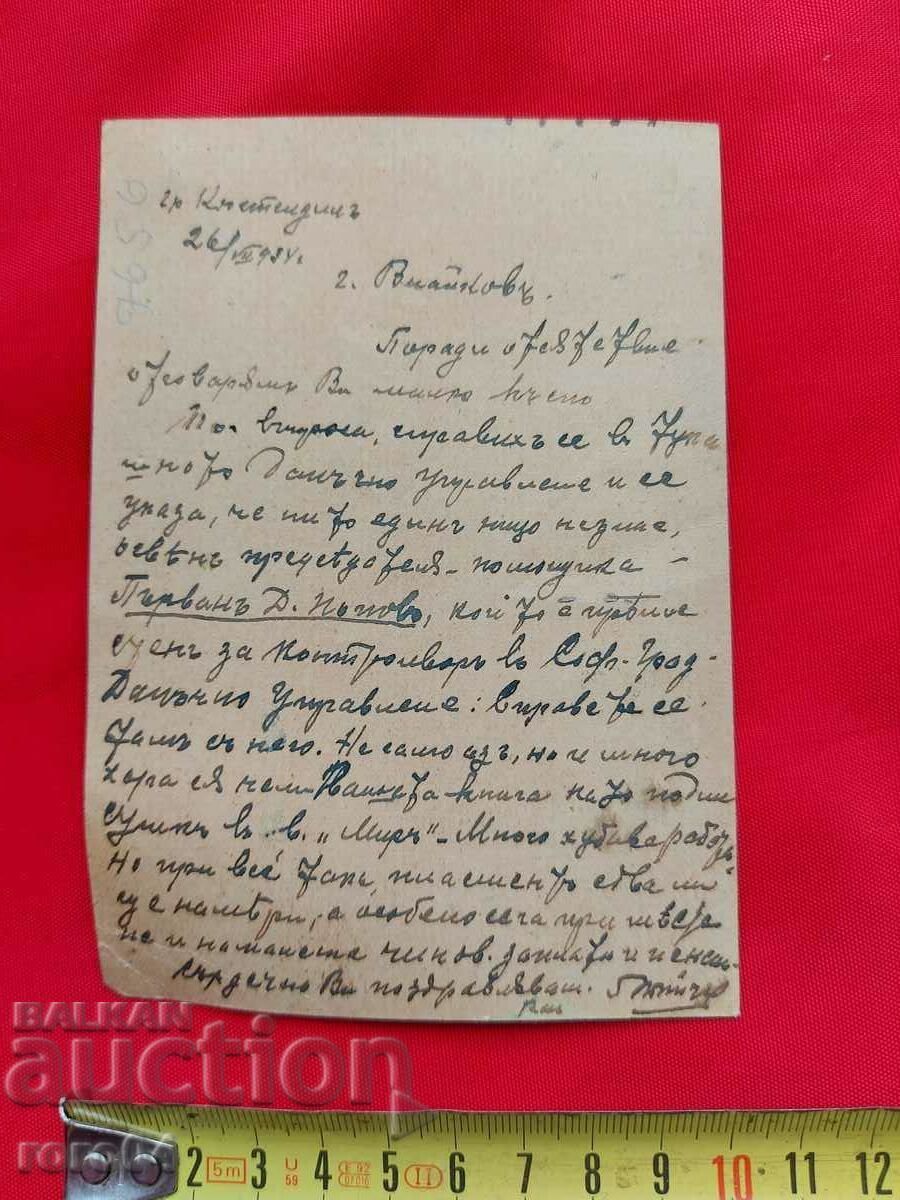 гр Кюстендилъ
26/VIII 934 г
г. Влайковъ.
Поради отсятствие
отговарямъ Ви малко късно
По въпроса, справихъ се въ тука
шното Данъчно Управление и се
указа, че нито единъ нищо незнае,
освѣнъ председателя - помощника -
Първанъ Д. Поповъ, който е прѣмѣ
стенъ за контрольоръ въ Соф. Град.
Данъчно Управление: Справете се
тамъ съ него. Не само азъ, но и много
хора ся чели Вашата книга като подли
стникъ въ в. „Миръ" - Много хубава работа
но при всѐ това, пласментъ едва ли
ще намѣри, а особено сега при
и намалените чинов. заплати и пенсии.
Сърдечно Ви поздравлявам.
956
BALKAN
auction
5m
2 3 4 5 6 7 8 9 10 11 12